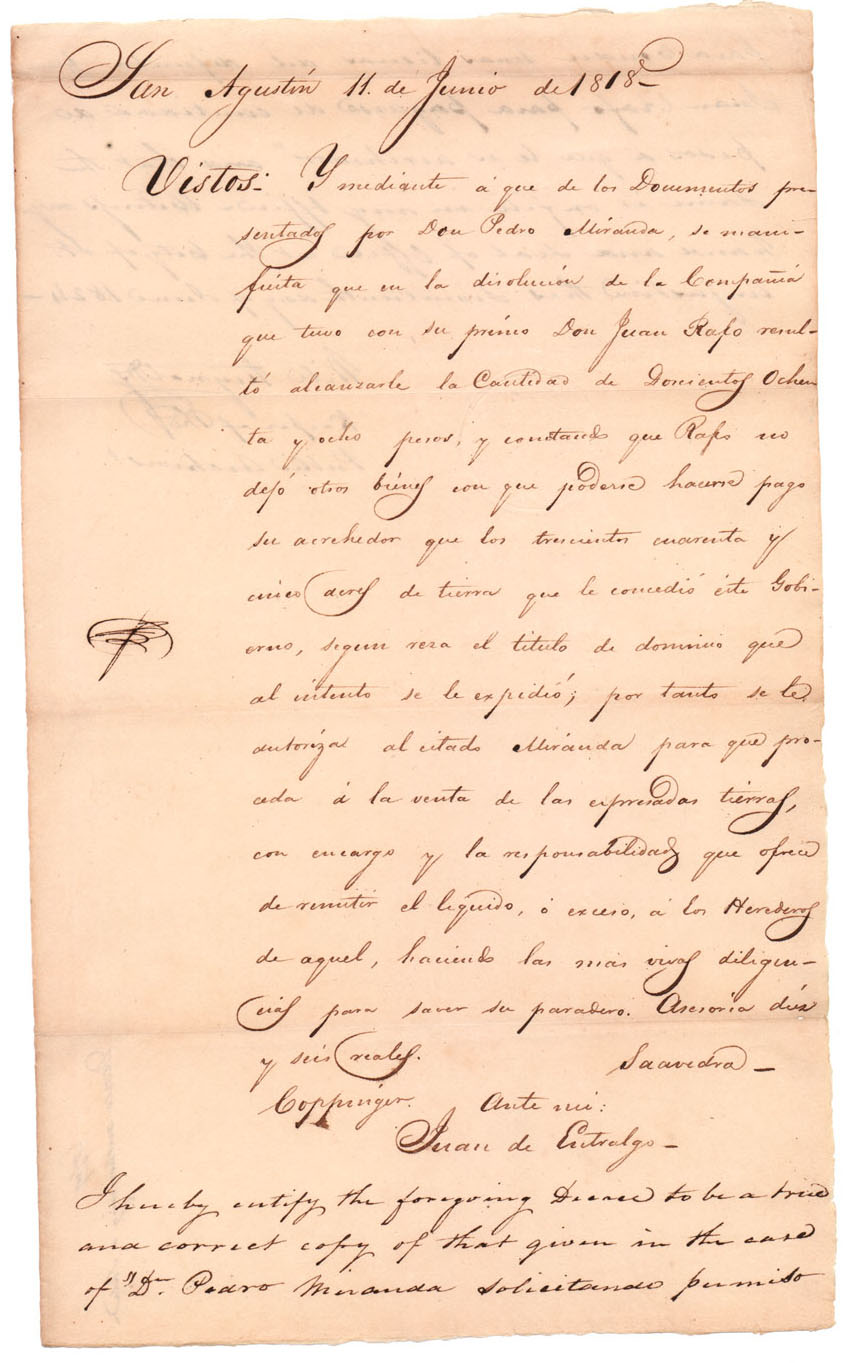 San Agustín 11. de Junio de 1818.
Vistos: Y mediante á que de los Documentos pre-
sentados por Don Pedro Miranda, se mani-
fiesta que en la disolución de la Compañía
que tuvo con su primo Don Juan Rafo resul-
tó alcanzarle la Cantidad de Doscientos Ochen
ta y ocho pesos, y constando que Rafo no
dejó otros biénes con que poderse hacerse pago
su acrehedor que los trescientos cuarenta y
cinco acres de tierra que le concedió éste Gobi-
erno, segun reza el titulo de dominio que
al intento se le expidió; por tanto se le
autoriza al citado Miranda para que pro-
ceda á la venta de las expresadas tiérras,
con encargo y la responsabilidad que ofrece
de remitir el liquido, ó exceso, á los Herederos
de aquel, haciendo las mas vivas diligen-
cias para saver su paradero. Asesoria diéz
y seis reales. Saavedra -
Coppinger. Ante mi:
Juan de Entralgo -
I hereby certify the foregoing Decree to be a true
and correct copy of that given in the case
of "Dn. Pedro Miranda solicitando permiso